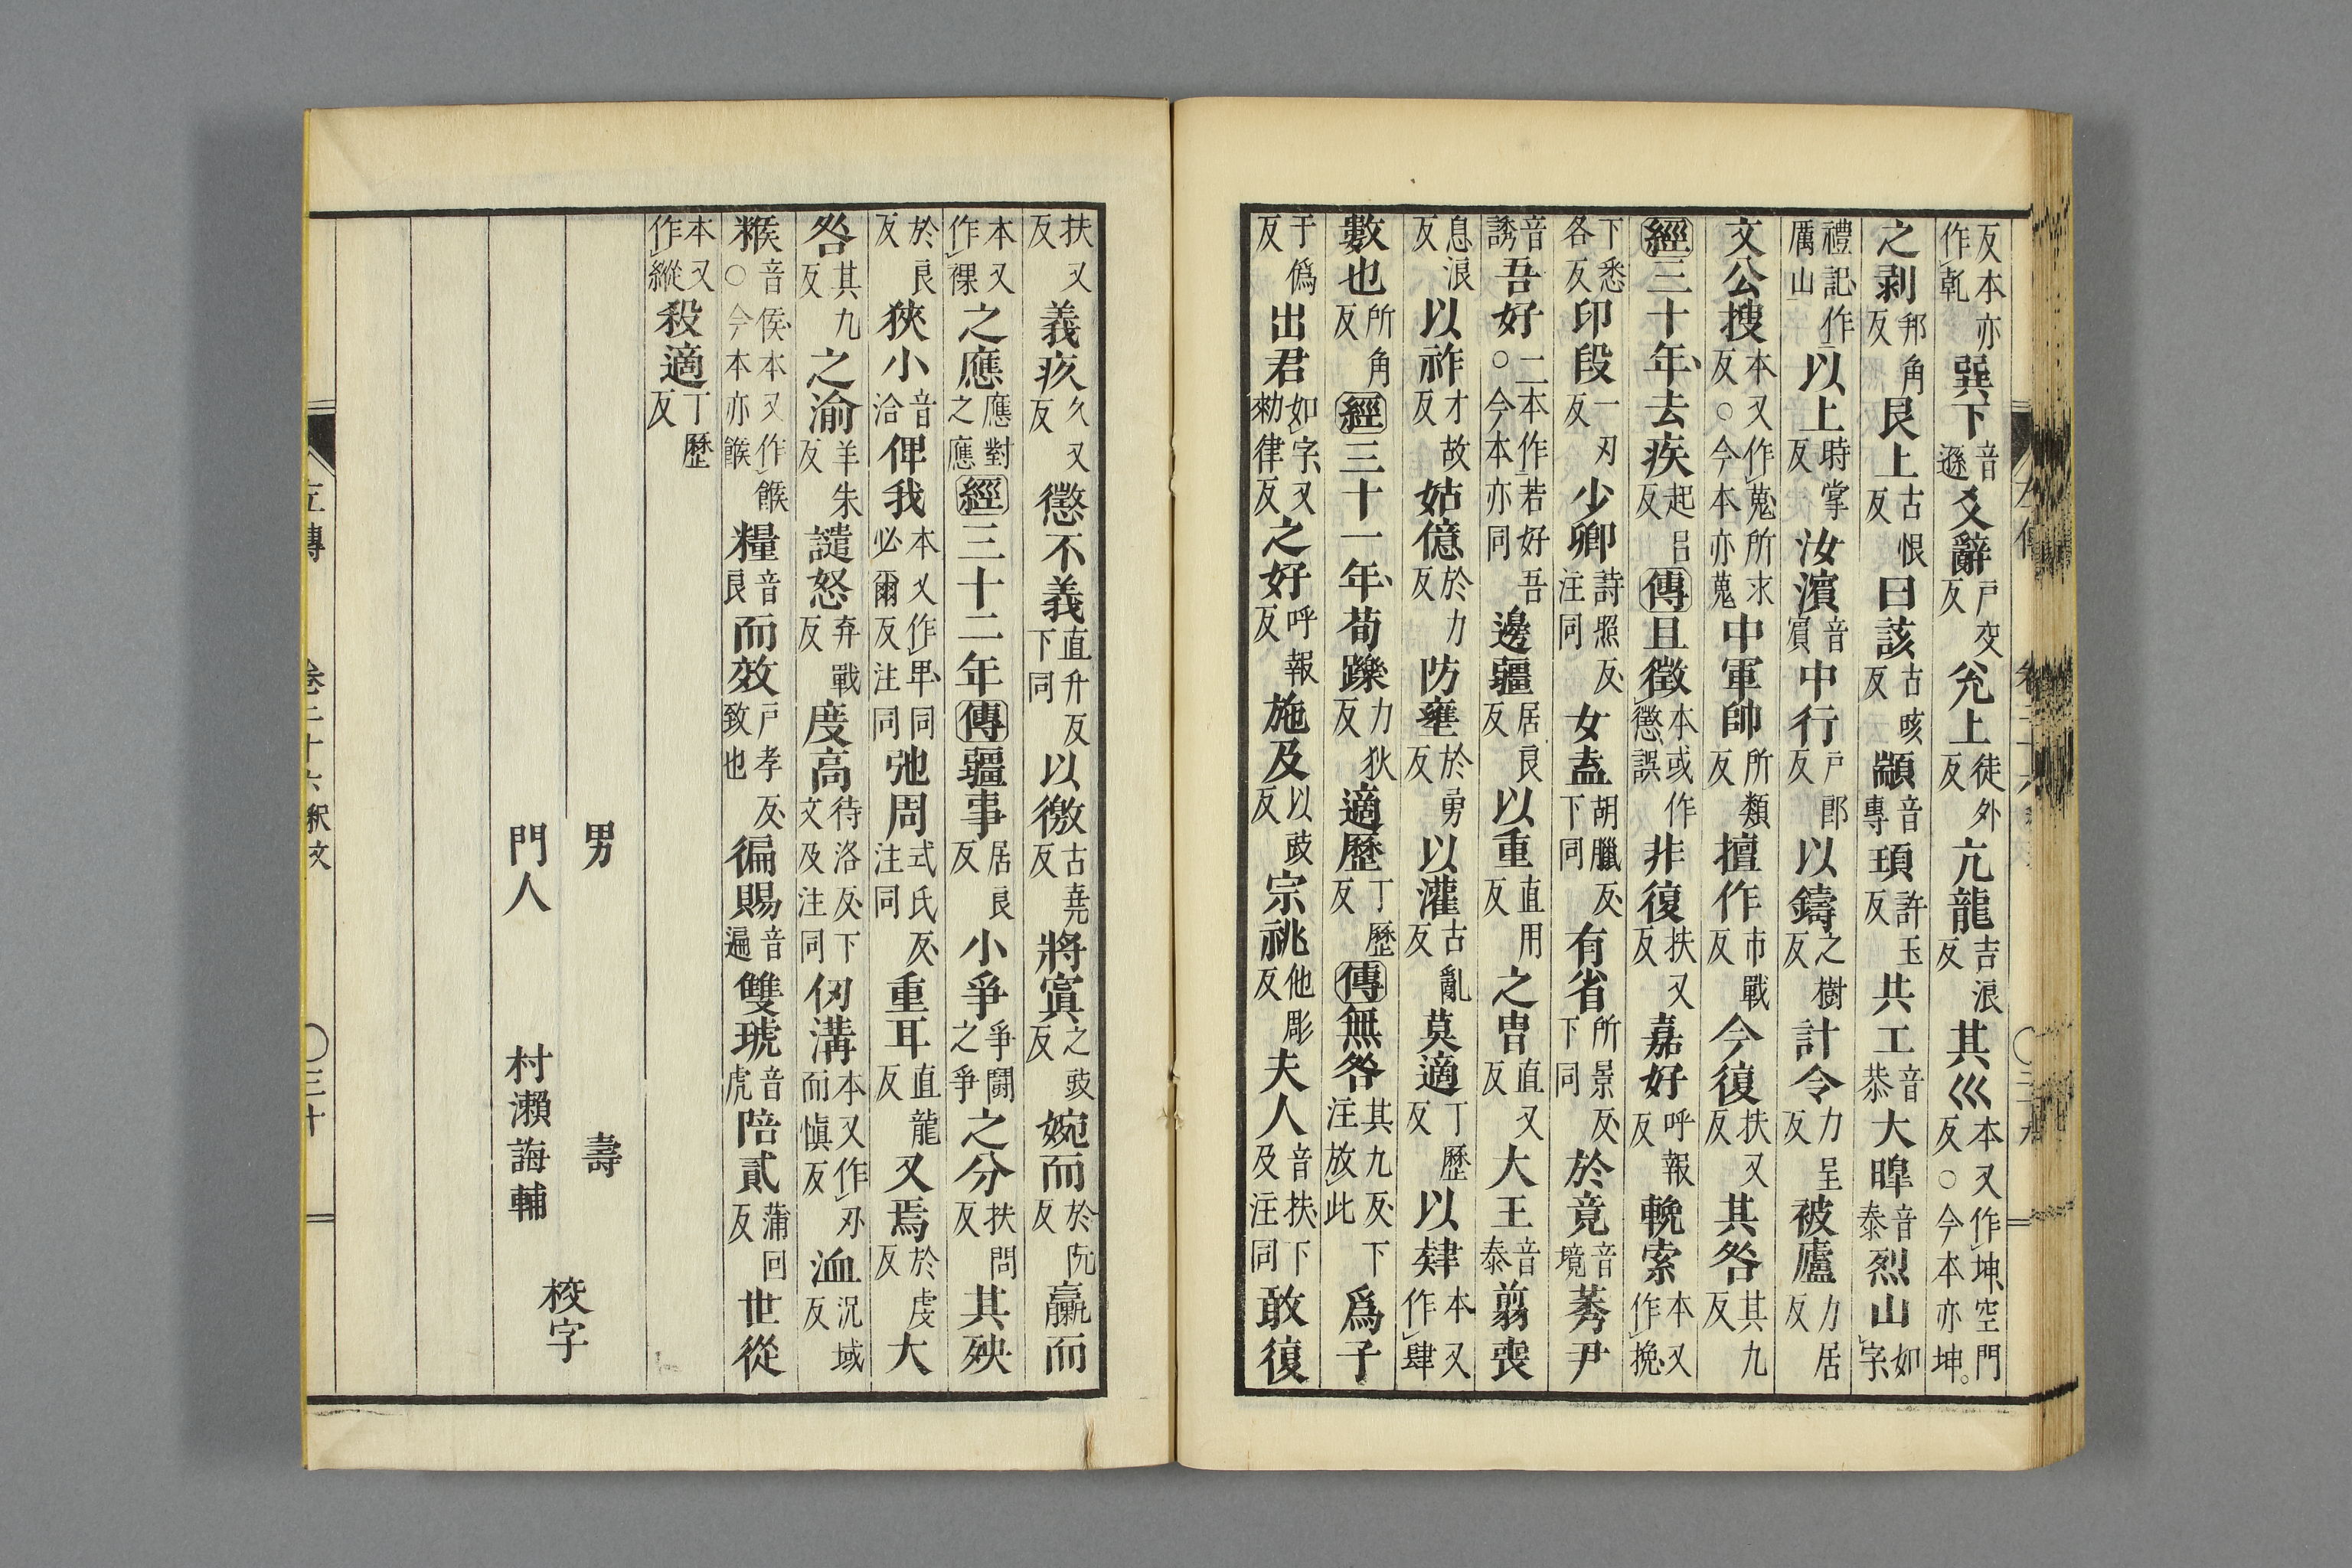 反本亦作乾巽下音遜爻辭戶交反兌上徒外反亢龍吉浪反其巛本又作坤空門反○今本亦坤。
之剥邦角反艮上古恨反曰該古咳反顓音專頊許玉反共工音恭大皥音泰烈山如字
禮記作厲山以上時掌反汝濱音賓中行戶郎反以鑄之樹反計令力呈反被廬力居反
文公搜本又作蒐所求反○今本亦蒐中軍帥所類反擅作市戰反今復扶又反其咎其九反
經三十年去疾起呂反傳且徵本或作懲誤非復扶又反嘉好呼報反輓索本又作挽
下悉各反印段一刃反少卿詩照反注同女盍胡臘反下同有省所景反下同於竟音境莠尹
音誘吾好二本作若好吾○今本亦同邊疆居良反以重直用反之冑直又反大王音泰翦喪
息浪反以祚才故反姑億於力反防壅於勇反以灌古亂反莫適丁歷反以肄本又作肆
數也所角反經三十一年荀躒力狄反適歷丁歷反傳無咎其九反下注放此爲子
于僞反出君如字又勑律反之好呼報反施及以豉反宗祧他彫反夫人音扶下及注同敢復
扶又反義疚久又反懲不義直升反下同以徼古堯反將寘之豉反婉而於阮反臝而
本又作裸之應應對之應經三十二年傳疆事居良反小爭爭鬪之爭之分扶問反其殃
於良反狹小音洽俾我本又作卑同必爾反注同弛周式氏反注同重耳直龍反又焉於虔反大
咎其九反之渝羊朱反譴怒弃戰反度高待洛反下文及注同仞溝本又作刃而愼反洫況域反
餱音侯本又作餱○今本亦餱糧音良而效戶孝反致也徧賜音遍雙琥音虎陪貳蒲回反世從
本又作縱殺適丁歷反
男　壽
門人　村瀨誨輔
校字
左傳　卷三十六釈文　○三十